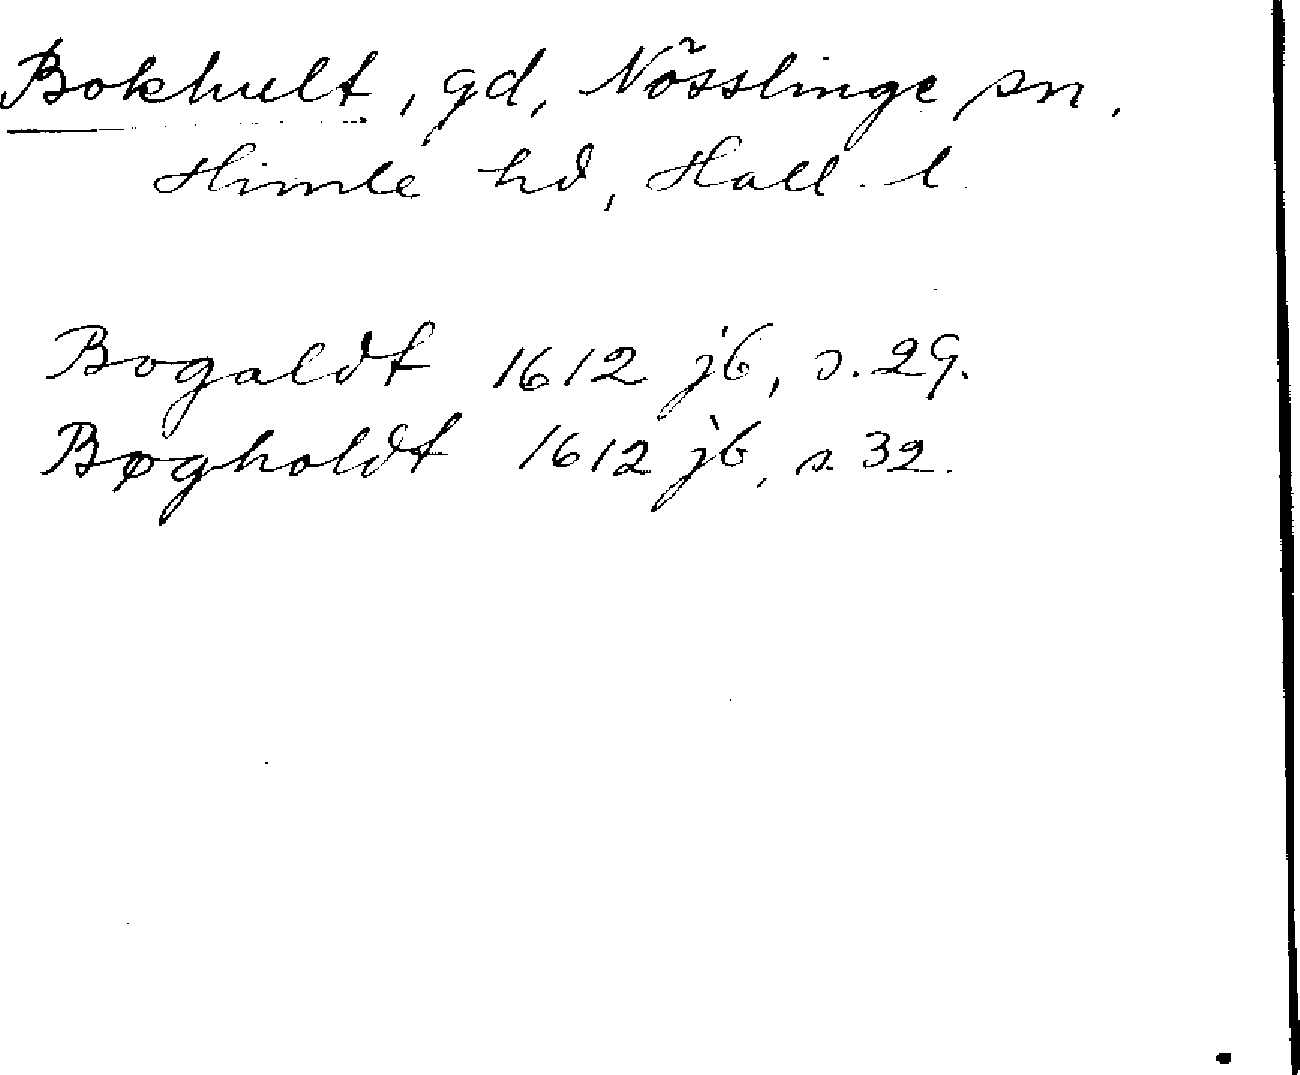 Bokhult, gd, Nösslinge sn,
Himle hd, Hall. l.
Bogaldt 1612 jb, s. 29.
Bøgholdt 1612 jb, s. 32.